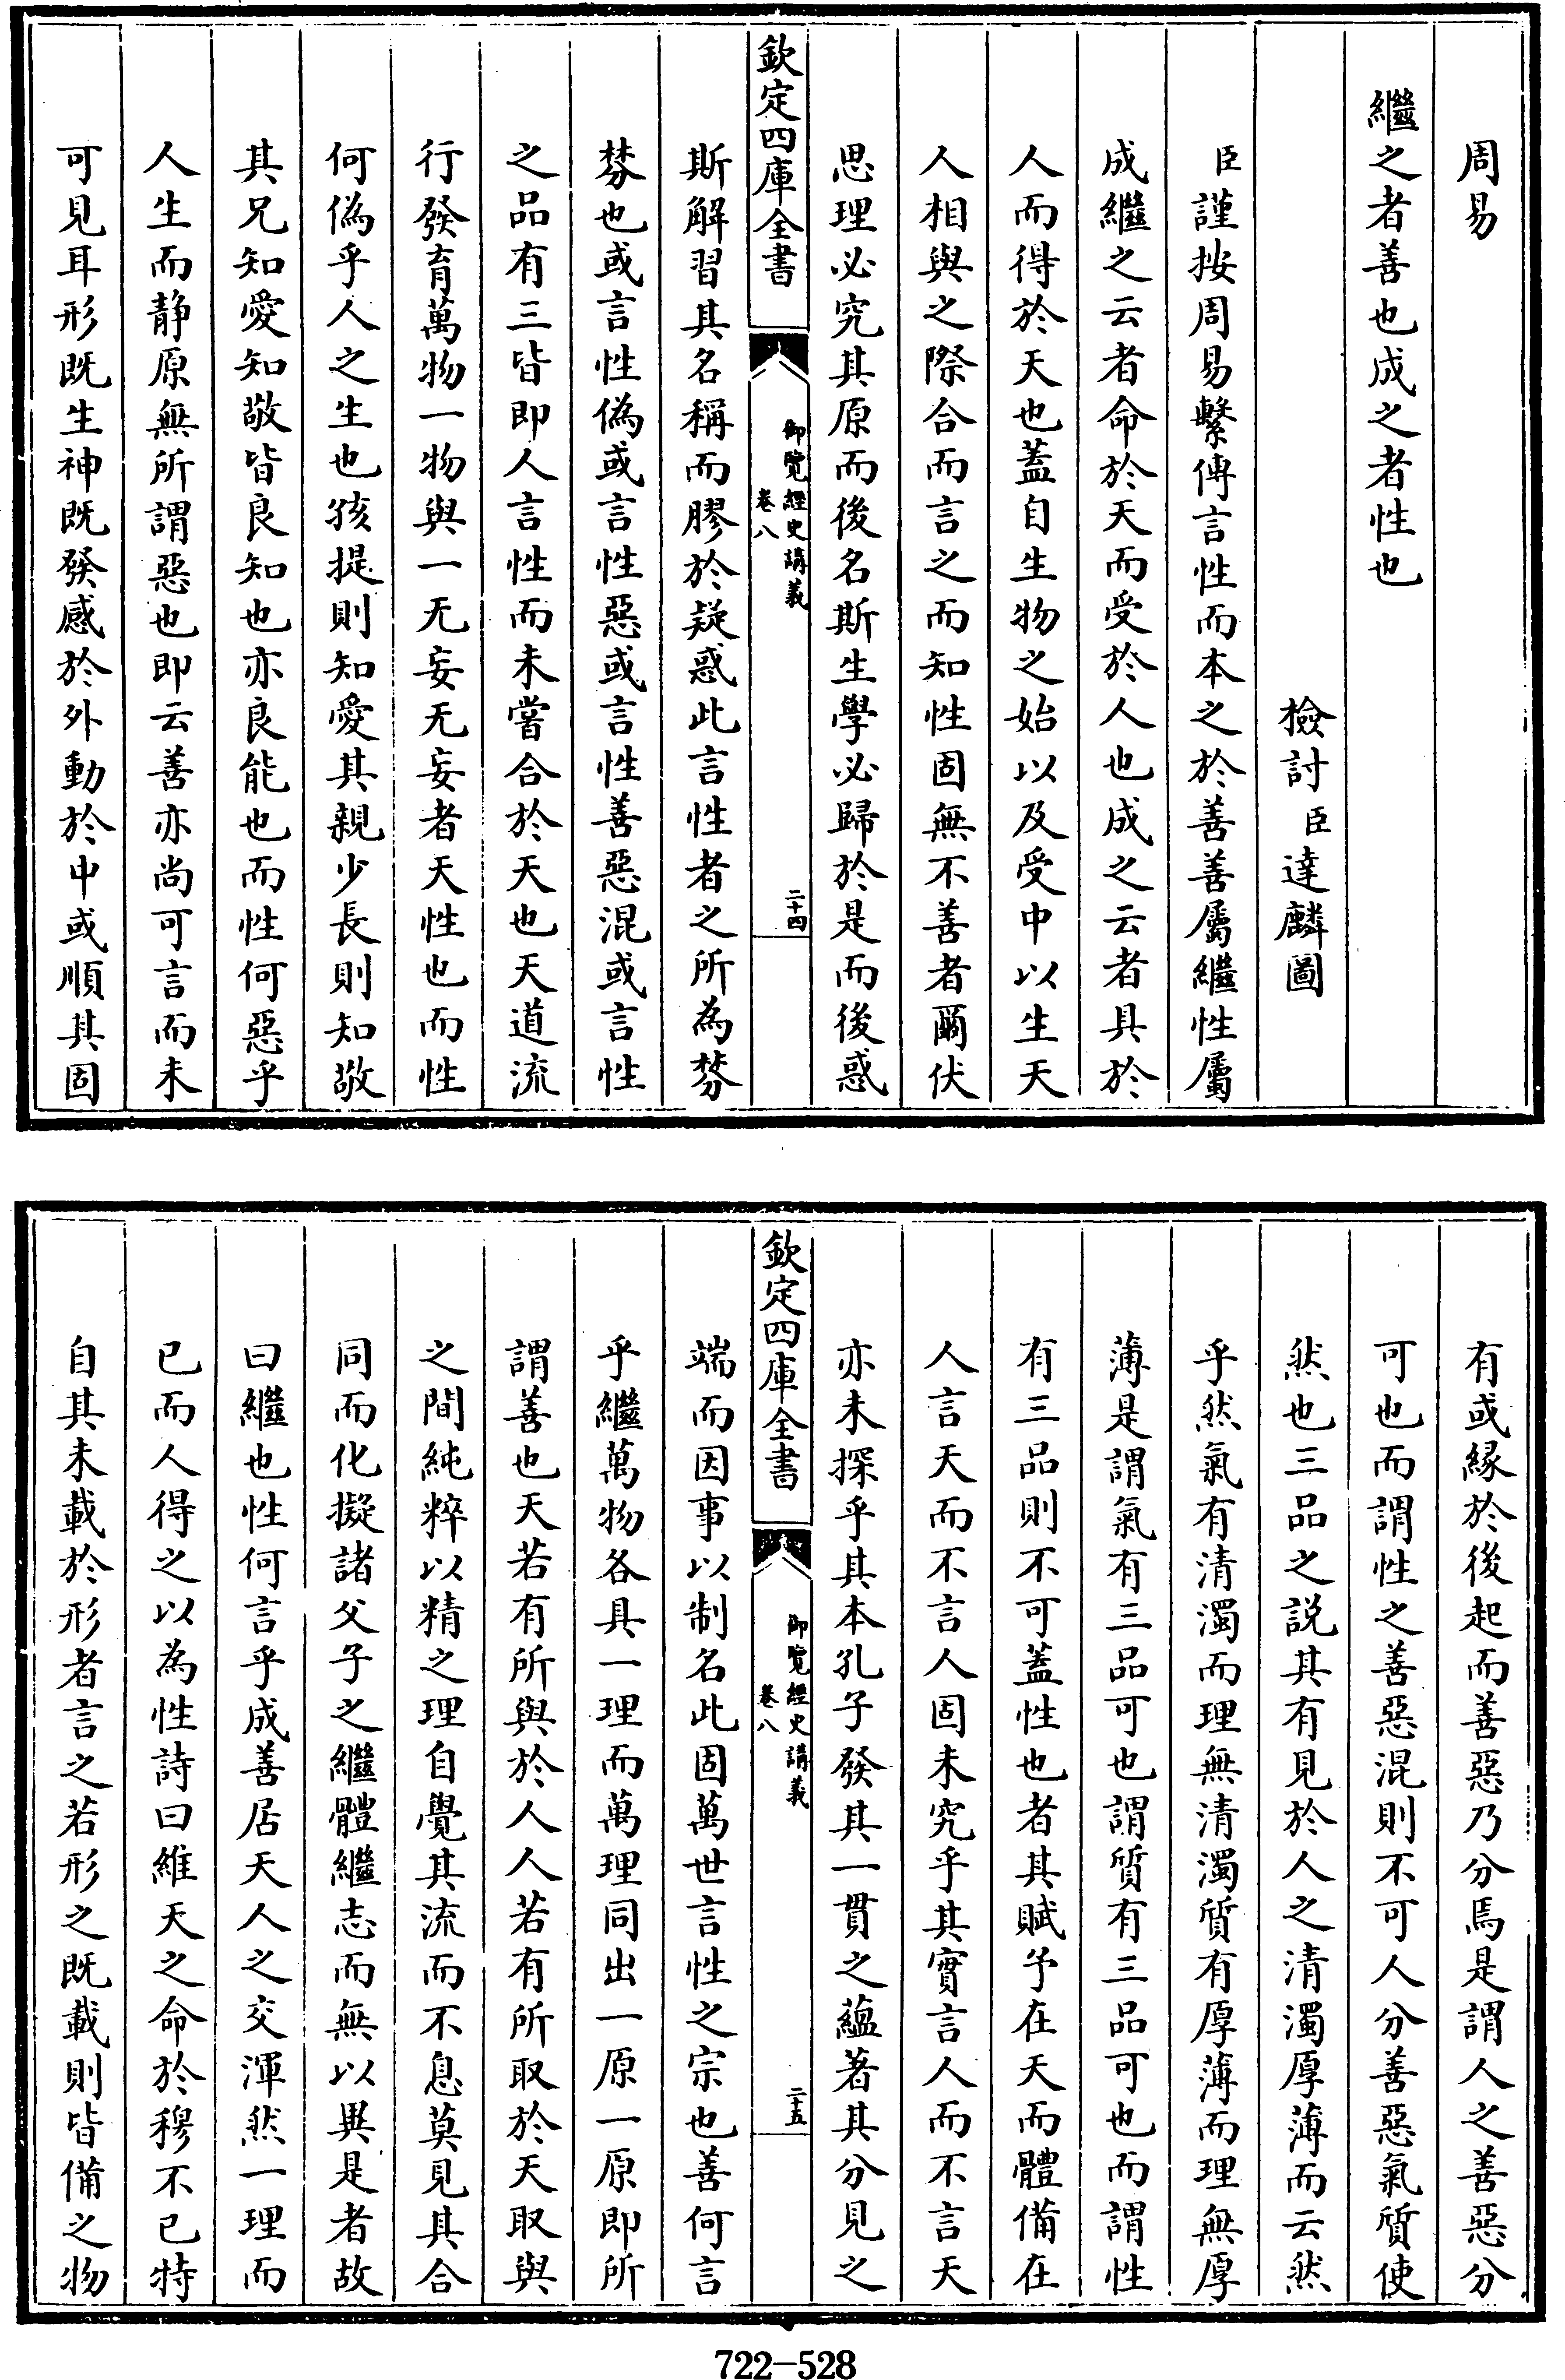 周易
繼之者善也成之者性也
檢討臣達麟圖
臣謹按周易繫傳言性而本之於善善屬繼性屬
成繼之云者命於天而受於人也成之云者具於
人而得於天也蓋自生物之始以及受中以生天
人相與之際合而言之而知性固無不善者爾伏
思理必究其原而後名斯生學必歸於是而後惑
欽定四庫全書
御覽經史講義
卷八
二十四
斯解習其名稱而膠於疑惑此言性者之所為棼
棼也或言性偽或言性惡或言性善惡混或言性
之品有三皆即人言性而未嘗合於天也天道流
行發育萬物一物與一无妄无妄者天性也而性
何偽乎人之生也孩提則知愛其親少長則知敬
其兄知愛知敬皆良知也亦良能也而性何惡乎
人生而静原無所謂惡也即云善亦尚可言而未
可見耳形既生神既發感於外動於中或順其固
有或緣於後起而善惡乃分焉是謂人之善惡分
可也而謂性之善惡混則不可人分善惡氣質使
然也三品之説其有見於人之清濁厚薄而云然
乎然氣有清濁而理無清濁質有厚薄而理無厚
薄是謂氣有三品可也謂質有三品可也而謂性
有三品則不可蓋性也者其賦予在天而體備在
人言天而不言人固未究乎其實言人而不言天
亦未探乎其本孔子發其一貫之蘊著其分見之
欽定四庫全書
御覽經史講義
卷八
二十五
端而因事以制名此固萬世言性之宗也善何言
乎繼萬物各具一理而萬理同出一原一原即所
謂善也天若有所與於人人若有所取於天取與
之間純粹以精之理自覺其流而不息莫見其合
同而化擬諸父子之繼體繼志而無以異是者故
曰繼也性何言乎成善居天人之交渾然一理而
已而人得之以為性詩曰維天之命於穆不已特
自其未載於形者言之若形之既載則皆備之物
722-528